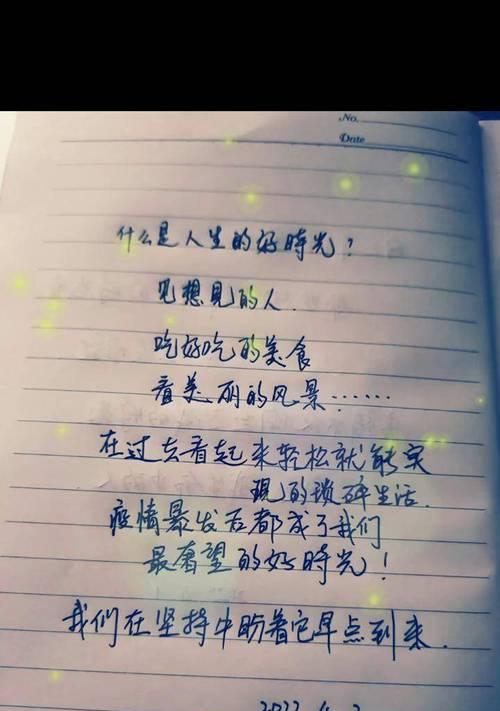 No.
Date
什么是人生的好時光？
见想見的人.
吃好吃的美食
看美丽的风景……
在过去看起来轻松就能实
現的琐碎生活.
疫情暴发后都成了我们
最奢望的好時光！
我们在坚持中盼着它早点到来.